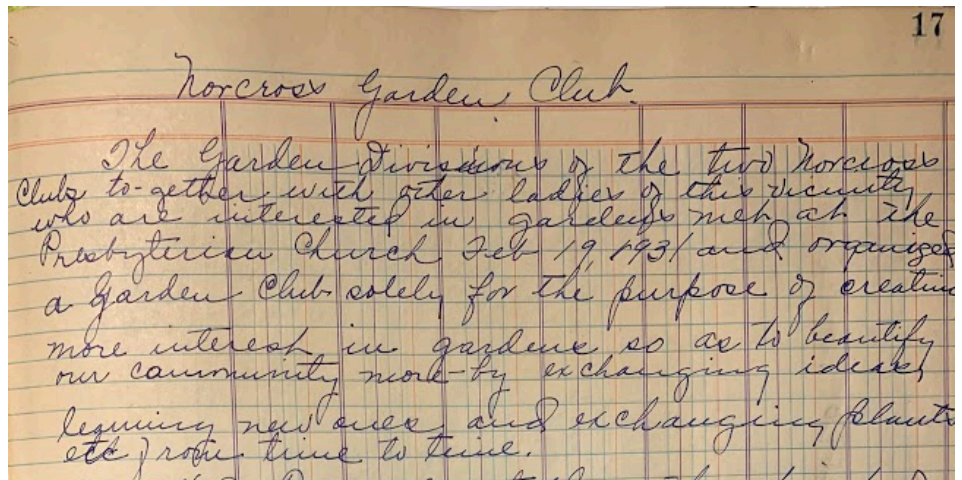 17
Norcross Garden Club.
The Garden Divisions of the two Norcross
Clubs to-gether with other ladies of this vicinity
who are interested in gardens met at the
Presbyterian Church Feb 19, 1931 and organized
a Garden Club solely for the purpose of creating
more interest in gardens so as to beautify
our community more by exchanging ideas,
learning new ones and exchanging plants
etc from time to time.